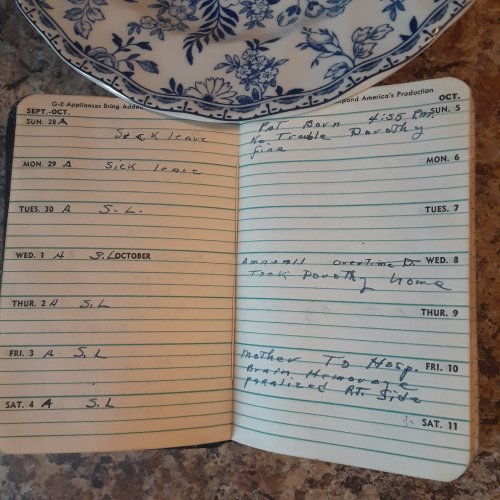 G-E Appliances Bring Added
SEPT.-OCT.
SUN. 28 A
Sick leave
MON. 29 A Sick leave
TUES. 30 A S.L.
WED. 1 A S.L OCTOBER
THUR. 2 A S.L
FRI. 3 A S.L
SAT. 4 A S.L
pand America's Production
OCT.
SUN. 5
Pat Born 4:55 P.M.
No Trouble Dorothy
fine
MON. 6
TUES. 7
WED. 8
overtime D.
Took Dorothy home
THUR. 9
FRI. 10
Mother To Hosp.
Brain Hemorage
Paralized Rt. Side
SAT. 11